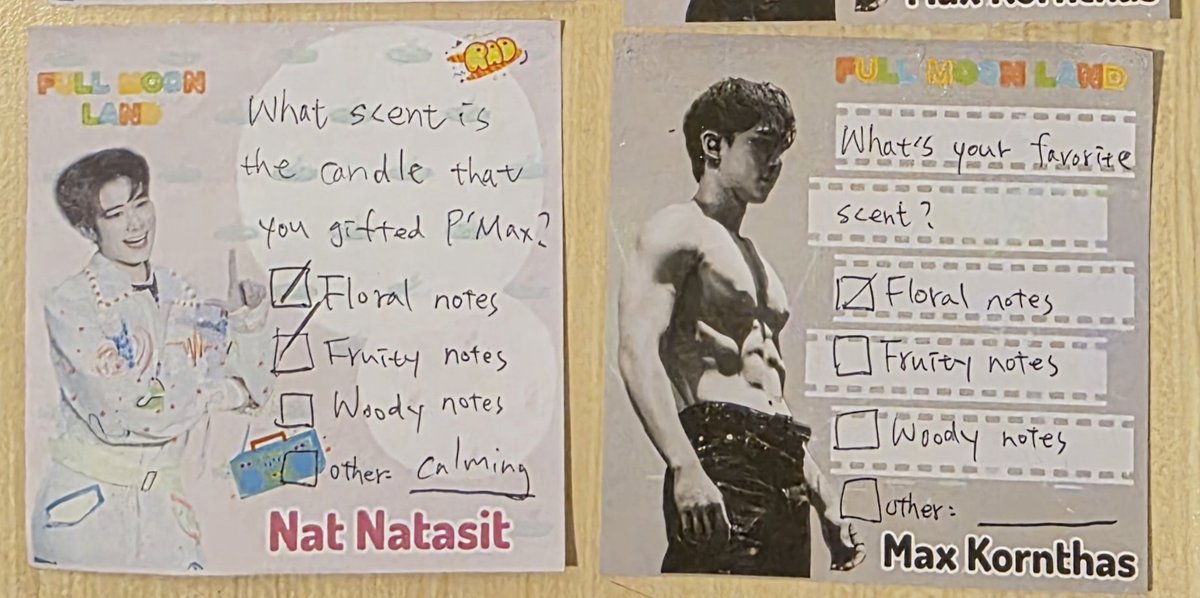 Max Kornthas
FULL MOON
LAND
RAD
What scent is
the candle that
you gifted P'Max?
Floral notes
Fruity notes
Woody notes
other: calming
Nat Natasit
FULL MOON LAND
What's your favorite
scent?
Floral notes
Fruity notes
Woody notes
other:
Max Kornthas